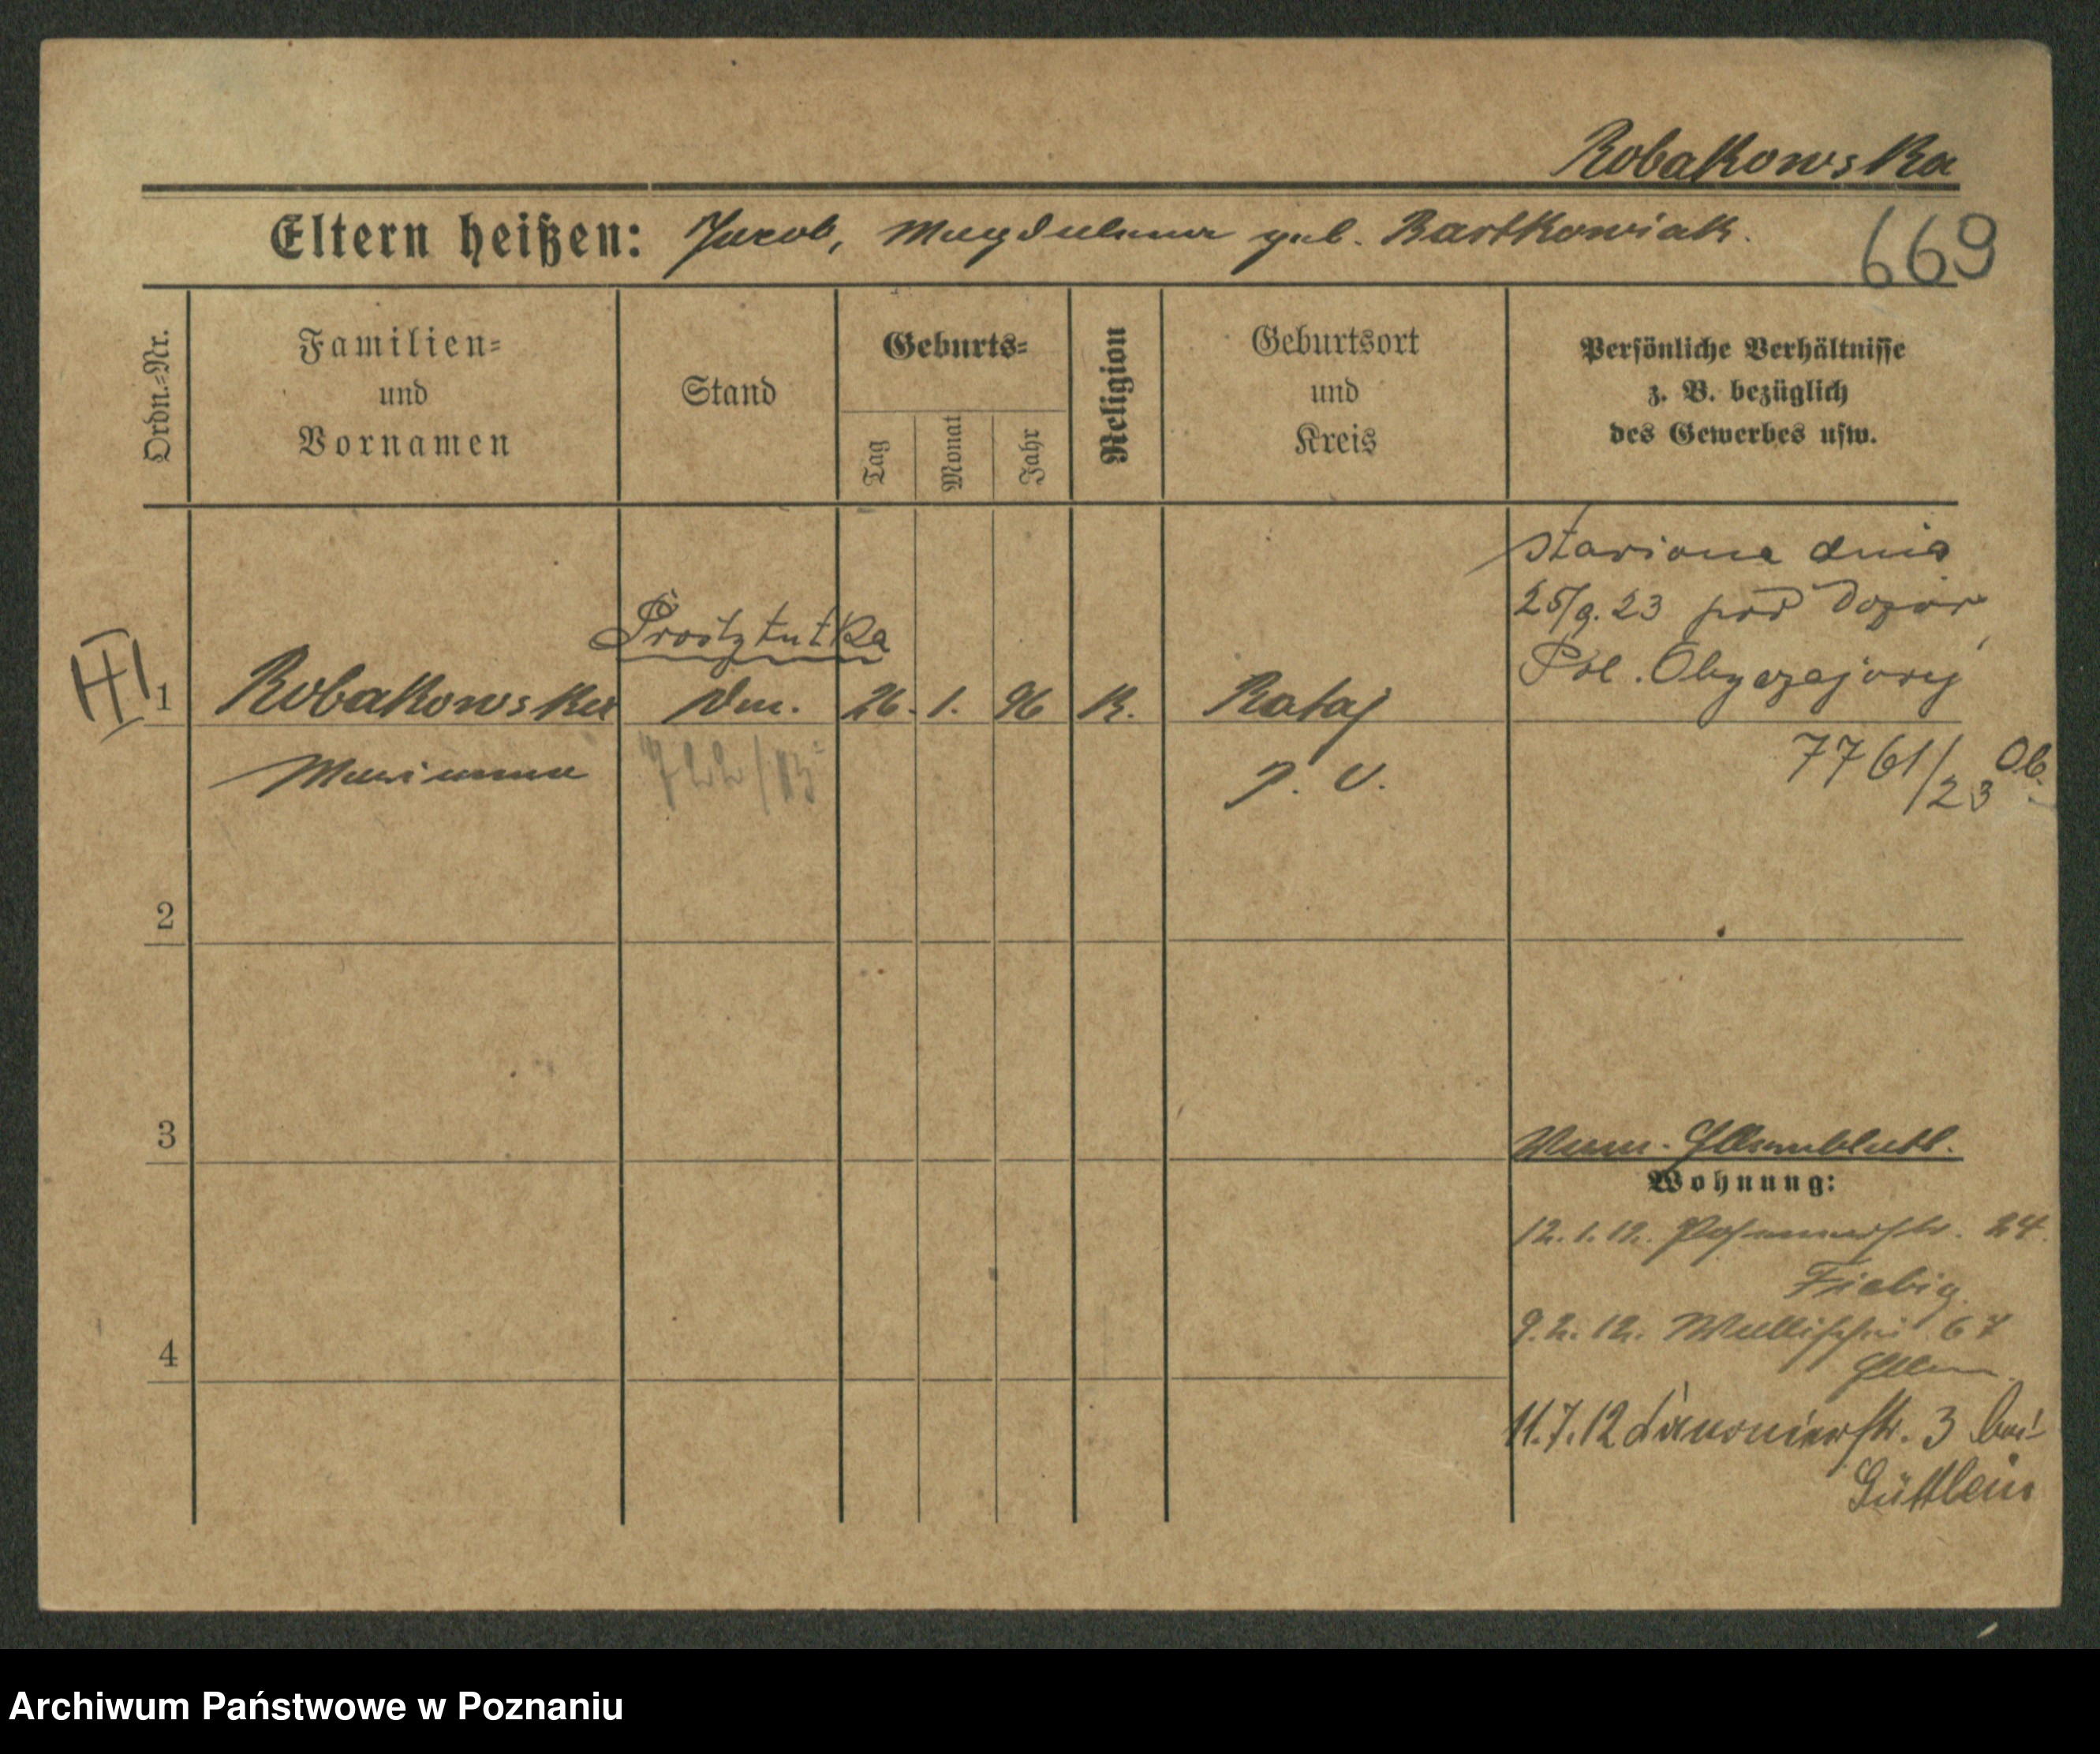 Robakowska
Eltern heißen: Jacob, Magdalena geb. Bartkowiak.
669
Ordn.-Nr.
Familien-
und
Vornamen
Stand
Geburts-
Tag
Monat
Jahr
Religion
Geburtsort
und
Kreis
Persönliche Verhältnisse
z. B. bezüglich
des Gewerbes usw.
stawiona dnia
25/9.23 pod Dozór
Pol. Obyczajowej
7761/23 Ob.
1
Robakowska
Marianna
Prostytutka
26. 1. 96
K.
Rataj
P. O.
2
3
4
Wohnung:
12.1.12. 24.
Fiebig
9.2.12. Wallischei 67
11.7.12 3 bei
Güttlein
Archiwum Państwowe w Poznaniu